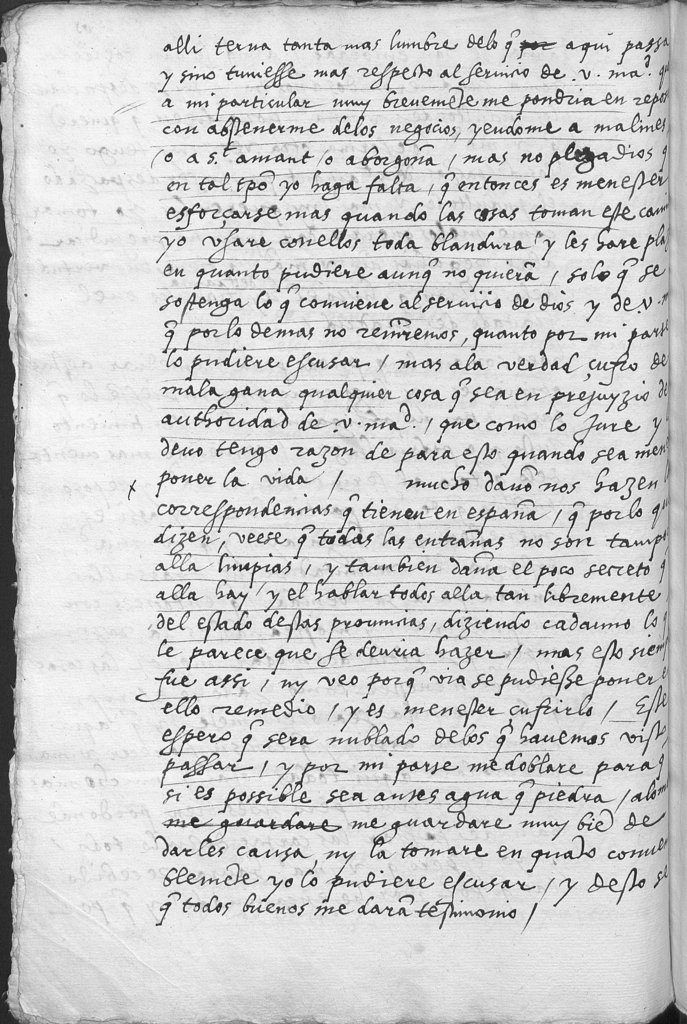 alli terna tanta mas lumbre delo q̃ por aqui passa
y sino tuuiesse mas respecto al seruicio de .v. ma.d que
a mi particular muy breuemẽte me pondria en repos
con abstenerme delos negocios, yendome a malines
/o a s.t amant /o a borgoña / mas no plega a dios q
en tal tp̃o yo haga falta, q̃ entonces es menester
esforçarse mas quando las cosas toman este cam
yo vsare conellos toda blandura y les hare pla
en quanto pudiere aunq̃ no quierã / solo q̃ se
sostenga lo q̃ conuiene al seruicio de dios y de .v. m
q̃ por lo demas no reñiremos, quanto por mi parte
lo pudiere escusar / mas ala verdad çufro de
mala gana qualquier cosa q̃ sea en prejuyzio de
authoridad de .v. ma.d , que como lo Jure y
deuo tengo razon de para esto quando sea men
poner la vida / mucho daño nos hazen l
correspondencias q̃ tienen en españa, q̃ por lo qu
dizen, veese q̃ todas las entrañas no son tampo
alla limpias, y tambien daña el poco secreto q
alla hay / y el hablar todos alla tan libremente
del estado destas prouincias, diziendo cada uno lo q
le parece que se deuria hazer / mas esto siem
fue assi / ny veo porq̃ via se pudiesse poner e
ello remedio, y es menester çufrirlo / Este
espero q̃ sera nublado delos q̃ hauemos visto
passar, y por mi parte me doblare para q
si es possible sea antes agua q̃ piedra / alome
me guardare me guardare muy biẽ de
darles causa, ny la tomare en quãto conue
blemẽte yo lo pudiere escusar, y desto se
q̃ todos buenos me darã testimonio /